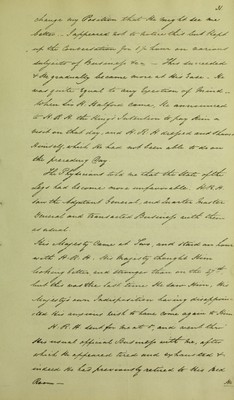 31
change my Position that He might see me
better. I appeared not to notice this but Kept
up the Conversation for ½ hour on various
subjects of Business &c. — This succeeded
& He gradually became more at His Ease. He
was quite Equal to any Exertion of Mind —
When Sir H. Halford came, He announced
to H.R.H. the King's Intention to pay Him a
visit on that day, and H.R.H. and shaved
Himself, which He had not been able to do on
the preceding Day
The Physicians told me that the State of the
Legs had become more unfavorable. H.R.H.
saw the Adjutant General, and Quarter Master
General and transacted Business with them
as usual.
His Majesty Came at Two, and staid an hour
with H.R.H. His Majesty thought Him
looking better and stronger than on the 27th
but this was the last time He saw Him, His
Majesty's own Indisposition having disappoin-
ted His anxious wish to have come again to Him
H.R.H. sent for me at 5, and went thro'
His usual official Business with me, after
which He appeared tired and exhausted &
indeed He had previously retired to His Bed
Room —